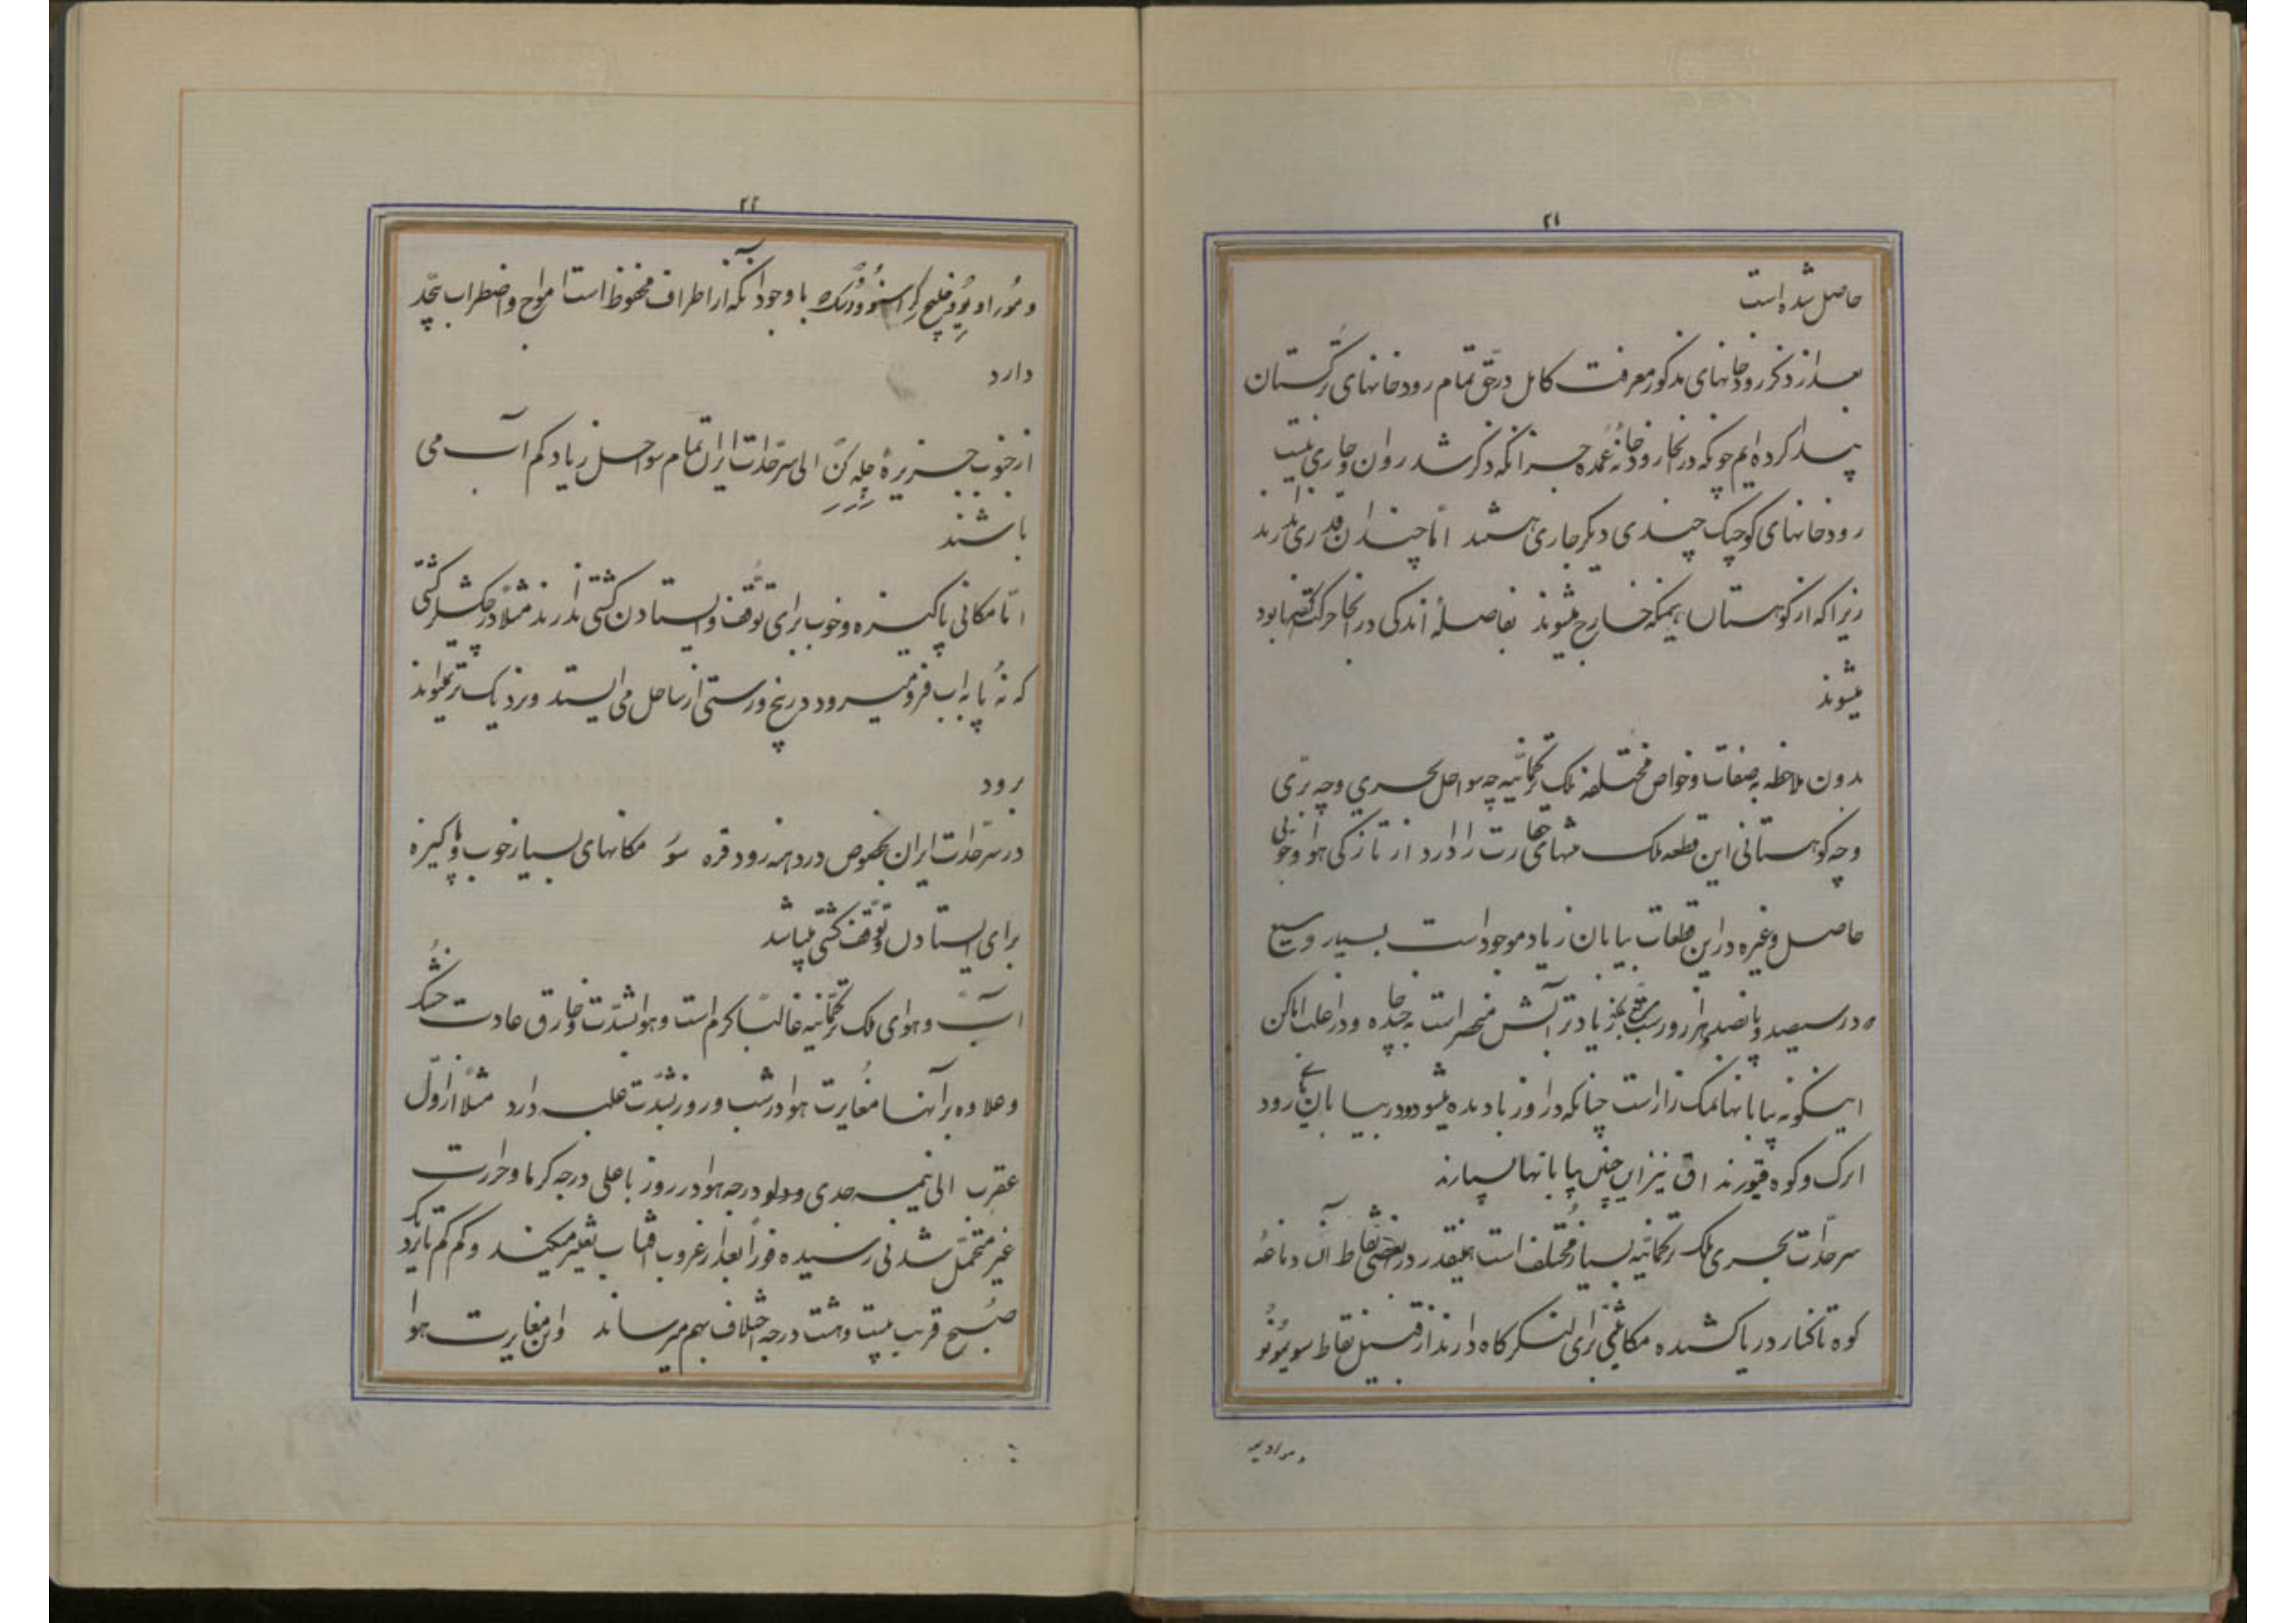 ۲۱
حاصل شده است
بعد از ذکر رودخانهای مذکور معرفت کامل در حق تمام رودخانهای ترکستان
پیدا کرده ایم چونکه در انجا رودخانهٔ عمده جز انکه ذکر شد روان و جاری نیست
رودخانهای کوچک چندی دیکر جاری هستند امّا چندان قدری ندارند
زیرا که از کوهستان همینکه خارج میشوند بفاصلهٔ اندکی در انجا حرکت نابود
میشوند
بدون ملاحظه بصفات و خواص مختلفه ملک ترکمانیّه چه سواحل بحری و چه برّی
و چه کوهستانی این قطعه ملک منتهای را دارد از تازکی هوا و خوبی
حاصل و غیره در این قطعات بیابان زیاد موجود است بسیار وسیع
در سیصد و پانصد هزار و زیادتر آبش منحصر است به چاه و در اغلب اماکن
اینکونه بیابانها نمک زار است چنانکه در بیابان رود
اترک و کوه نیز این چنین بیابانها بسیارند
سرحدّات بحری ملک ترکمانیّه بسیار مختلف است همینقدر در بعضی نقاط آن دماغهٔ
کوه تا کنار دریا کشیده مکانی برای لنکرکاه دارند از قبیل نقاط
و مراویه
۲۲
و موراویو و خلیج با وجود آنکه از اطراف محفوظ است امواج و اضطراب بیحدّ
دارد
از جنوب جزیرهٔ چله کن الی سرحدّات ایران تمام سواحل زیاد کم آب می
باشند
امّا مکانی پاکیزه و خوب برای توقّف و ایستادن کشتی ندارند مثلاً در کشتی
که نُه پا به اب فرو میرود در پنج ورستی از ساحل می ایستد و نزدیک تر نمیتواند
برود
در سرحدّات ایران بخصوص در دهنه رود قره سو مکانهای بسیار خوب و پاکیزه
برای ایستادن و توقّف کشتی میباشد
آب و هوای ملک ترکمانیّه غالباً کرم است و هوا بشدّت و خارق عادت خشک
و علاوه بر آنها مغایرت هوا در شب و روز بشدّت غلبه دارد مثلاً از اوّل
عقرب الی نیمه جدی و دلو درجه هوا در روز با علی درجه کرما و حرارت
غیر متحمّل شدنی رسیده فوراً بعد از غروب افتاب تغییر میکند و کم کم تا نزدیک
صبح قریب بیست و هشت درجه اختلاف بهم میرساند و این مغایرت هوا